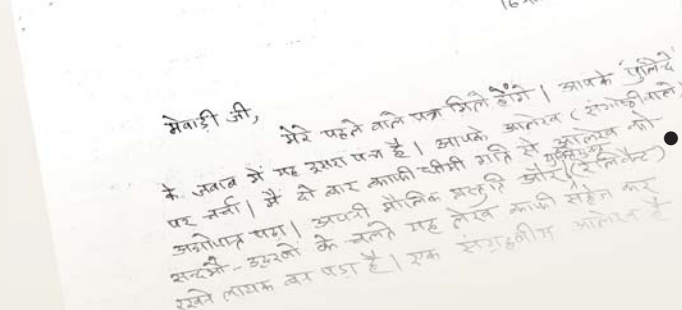 मेवाड़ी जी,
मेरे पहले वाले पत्र मिले होंगे। आपके 'पुलिंदे'
के जवाब में यह दूसरा पत्र है। आपके आलेख (संगोष्ठी वाले)
पर चर्चा। मैं दो बार काफी धीमी गति से आलेख को
अद्योपान्त पढ़ा। आपकी मौलिक प्रस्तुति और (रेलिवेंट)
सन्दर्भों-उद्धरणों के चलते यह लेख काफी सहेज कर
रखने लायक बन पड़ा है। एक संग्रहनीय आलेख है